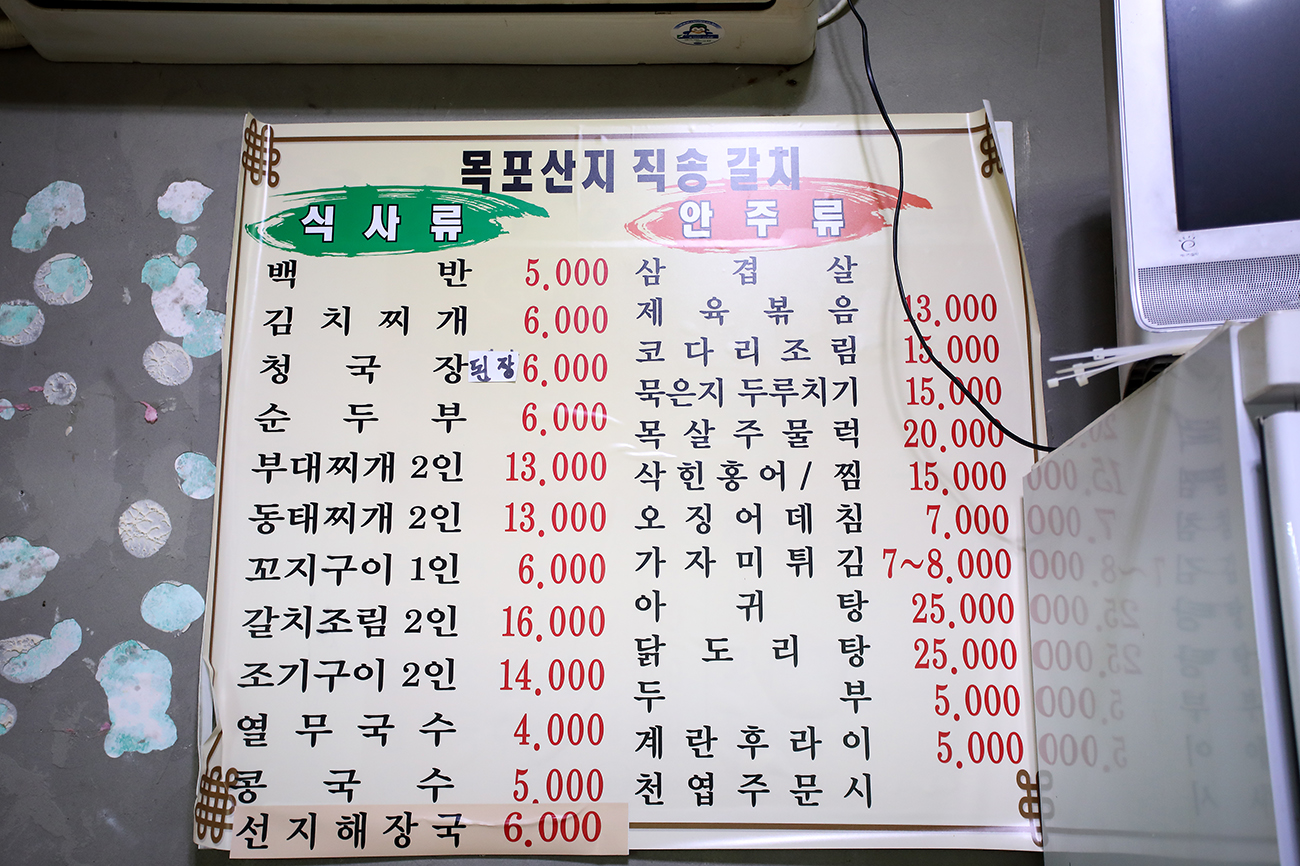 목포산지 직송 갈치
식사류
백반 5.000
김치찌개 6.000
청국장 된장 6.000
순두부 6.000
부대찌개 2인 13.000
동태찌개 2인 13.000
꼬지구이 1인 6.000
갈치조림 2인 16.000
조기구이 2인 14.000
열무국수 4.000
콩국수 5.000
선지해장국 6.000
안주류
삼겹살
제육볶음 13.000
코다리조림 15.000
묵은지 두루치기 15.000
목살주물럭 20.000
삭힌홍어/찜 15.000
오징어데침 7.000
가자미튀김 7~8.000
아귀탕 25.000
닭도리탕 25.000
두부 5.000
계란후라이 5.000
천엽주문시